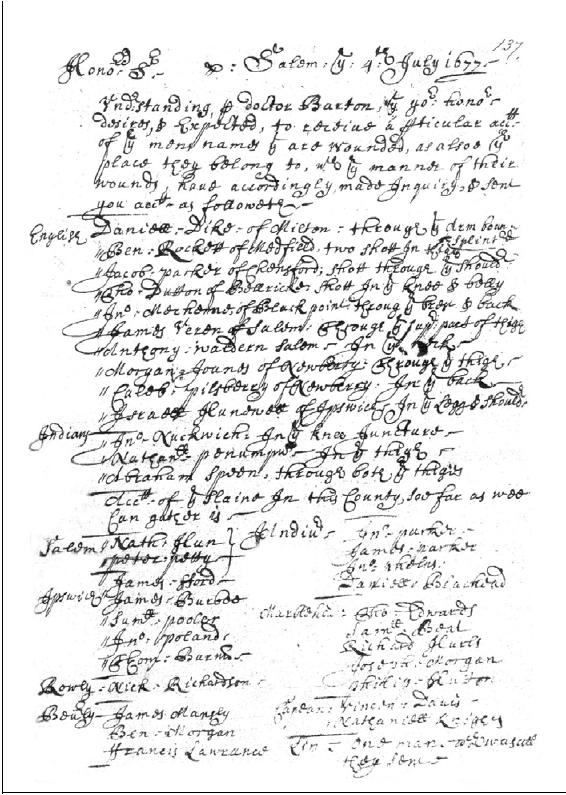 137
Hono:rd Sr Salem: ye: 4th July 1677
Vndstanding, p doctor Barton, yt yor honor
desires, & Expected, to receive a pticular acctt
of ye mens names yt are wounded, as alsoe ye
place they belong to, wth ye manner of their
wounds, have accordingly, made Inquiry, & sent
you acct as followeth
English Daniell Dike of Milton through ye Arm bone
splintd
" Ben: Rockett of Medfield, two shott In thigh
" Jacob: parker of Chensford; shott through ye Should
" Tho: Dutton of Bellricke: shott In ye knee & belly
" Jno: Mechenne of Black point: throug ye bear & back
" James Veren of Salem: Through ye upr: part of thigh
" Anthony: waldern Salem: In ye
" Morgan: Jounes of Newberry: Through ye thigh
" Caleb: pilsberry of Newberry: In ye back
" Israell Hunewell of Ipswich: In ye Legg & Should
Indians " Jno: Nuckwich: In ye knee Juncture
" Nathanll: penumpum: In ye thigh
" Abraham Speen, through both ye thighs
Acctt of ye Slaine In this County, soe far as wee
Can gather is
Salem Nath: Hun
peter: petty
James: fford
Ipswich James: Burbee
" Samll: pooler
" Jno: poland
" Thom: Burns
Rowly Nick: Richardson
Beverly James Mansly
Ben: Morgan
Francis Lawrance
Andivr Jno: parker
James: parker
Jno: phelps
Daniell: Blackhead
Marblehd: Tho: Edwards
Saml: Beal
Richard Hurls
Joseph: Morgan
philip:
Vincen: Davis
Nathaniell
Lin One man
they sent